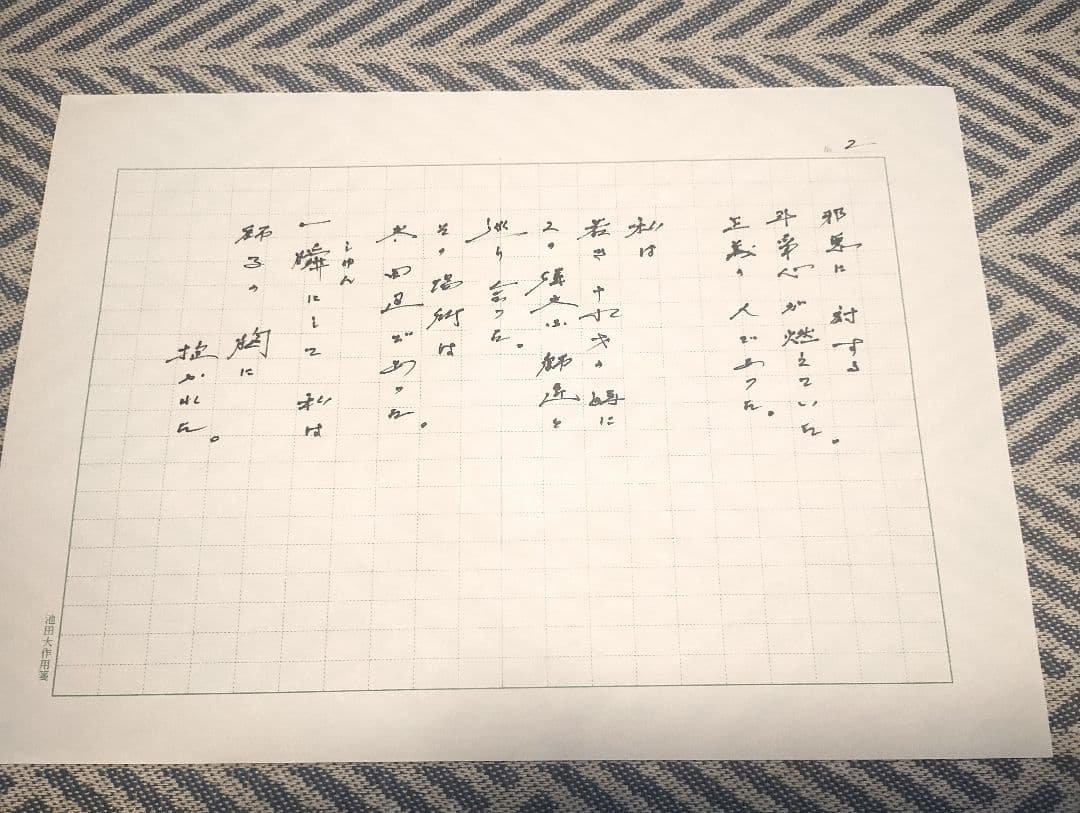 2
邪悪に 対する
斗争心が燃えていた。
正義の 人であった。
私は
若き 十九才の時に
この偉大な 師匠と
巡り会った。
その場所は
大田区であった。
しゅん
一瞬にして 私は
師子の 胸に
抱かれた。
池田大作用箋